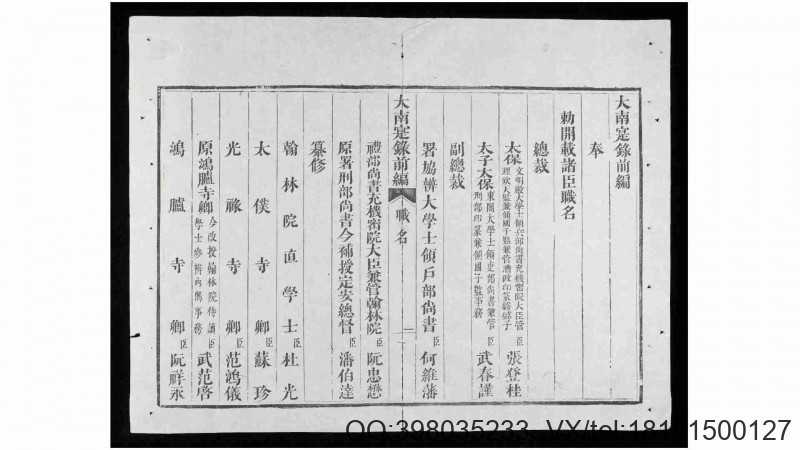 大南寔錄前編
奉
勅開載諸臣職名
總裁
太保文明殿大學士領兵部尚書充機密院大臣管理欽天監兼領國子監兼管漕政印篆綏盛子臣張登桂
太子太保東閣大學士領吏部尚書兼管刑部印篆兼領國子監事務臣武春謹
副總裁
署協辨大學士領戶部尚書臣何維藩
大南寔錄前編 職名 一
禮部尚書充機密院大臣兼管翰林院臣阮忠懋
原署刑部尚書今補授定安總督臣潘伯達
纂修
翰林院直學士臣杜光
太僕寺卿臣蘇珍
光祿寺卿臣范鴻儀
原鴻臚寺卿今改授翰林院侍讀學士參辦內閣事務臣武范啓
鴻臚寺卿臣阮祥永
QQ:398035233 VX/tel:181 1500127